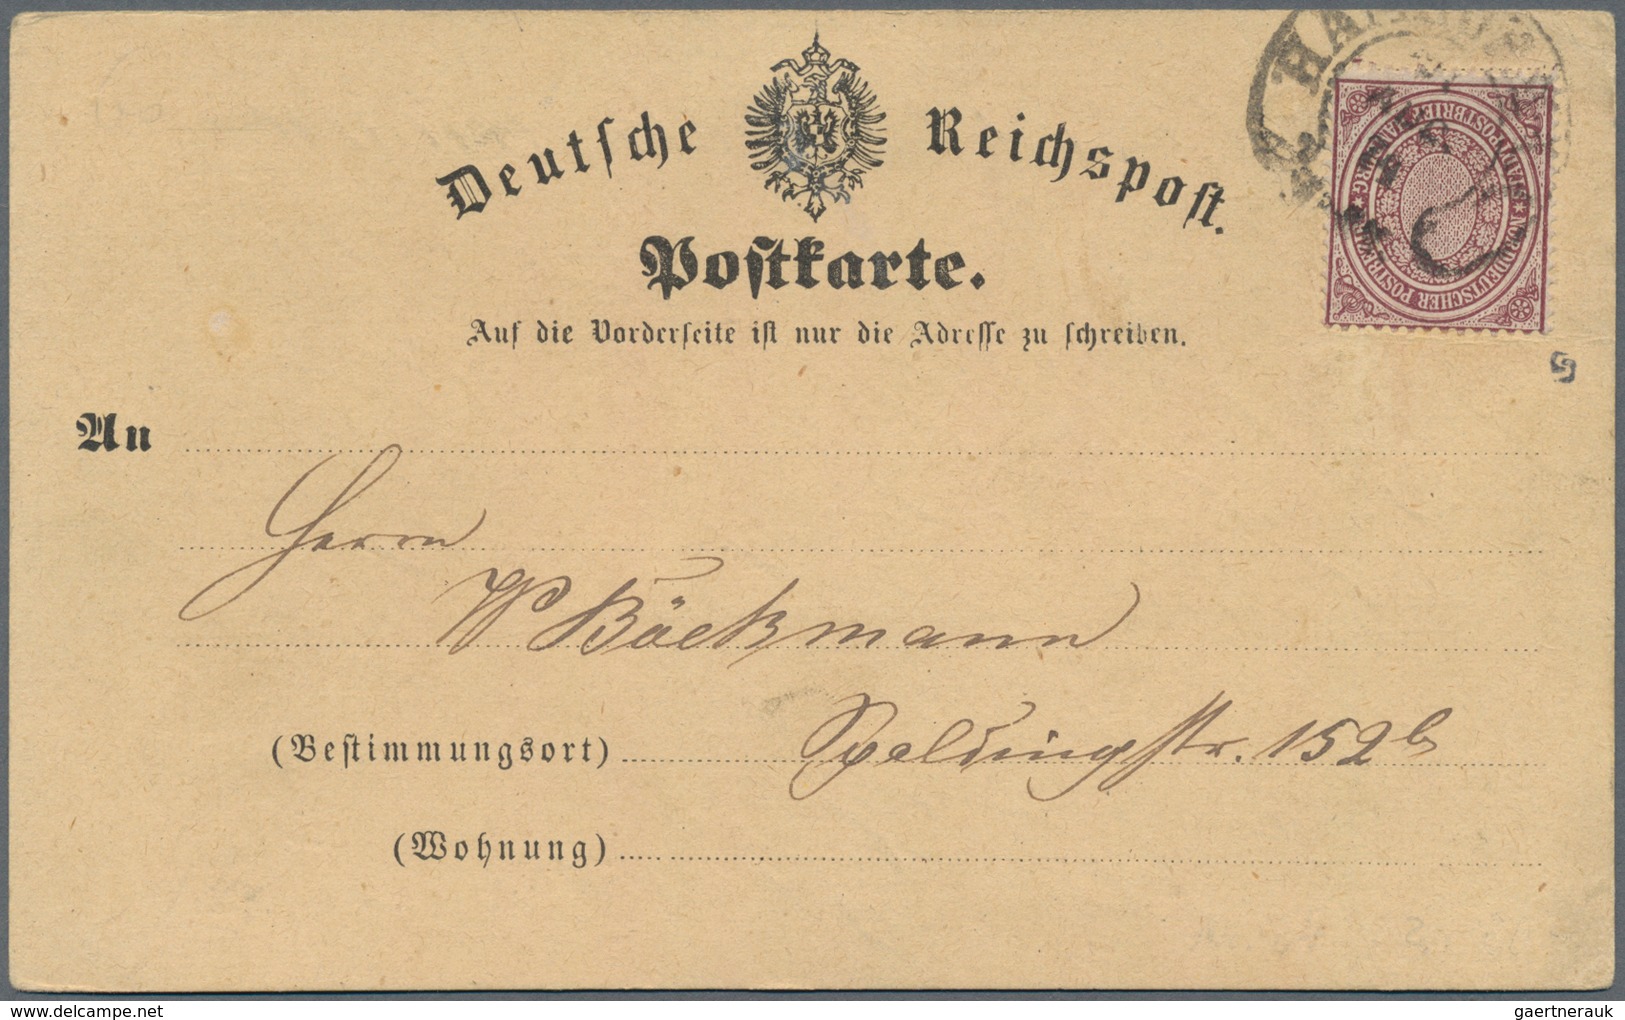 Deutsche Reichspost.
Postkarte.
Auf die Vorderseite ist nur die Adresse zu schreiben.
NORDDEUTSCHER POSTBEZIRK
STADTPOSTBRIEF HAMBURG
An
Herrn
W Böckmann
(Bestimmungsort) Spaldingstr. 152b
(Wohnung)
delcampe.net
gaertnerauk